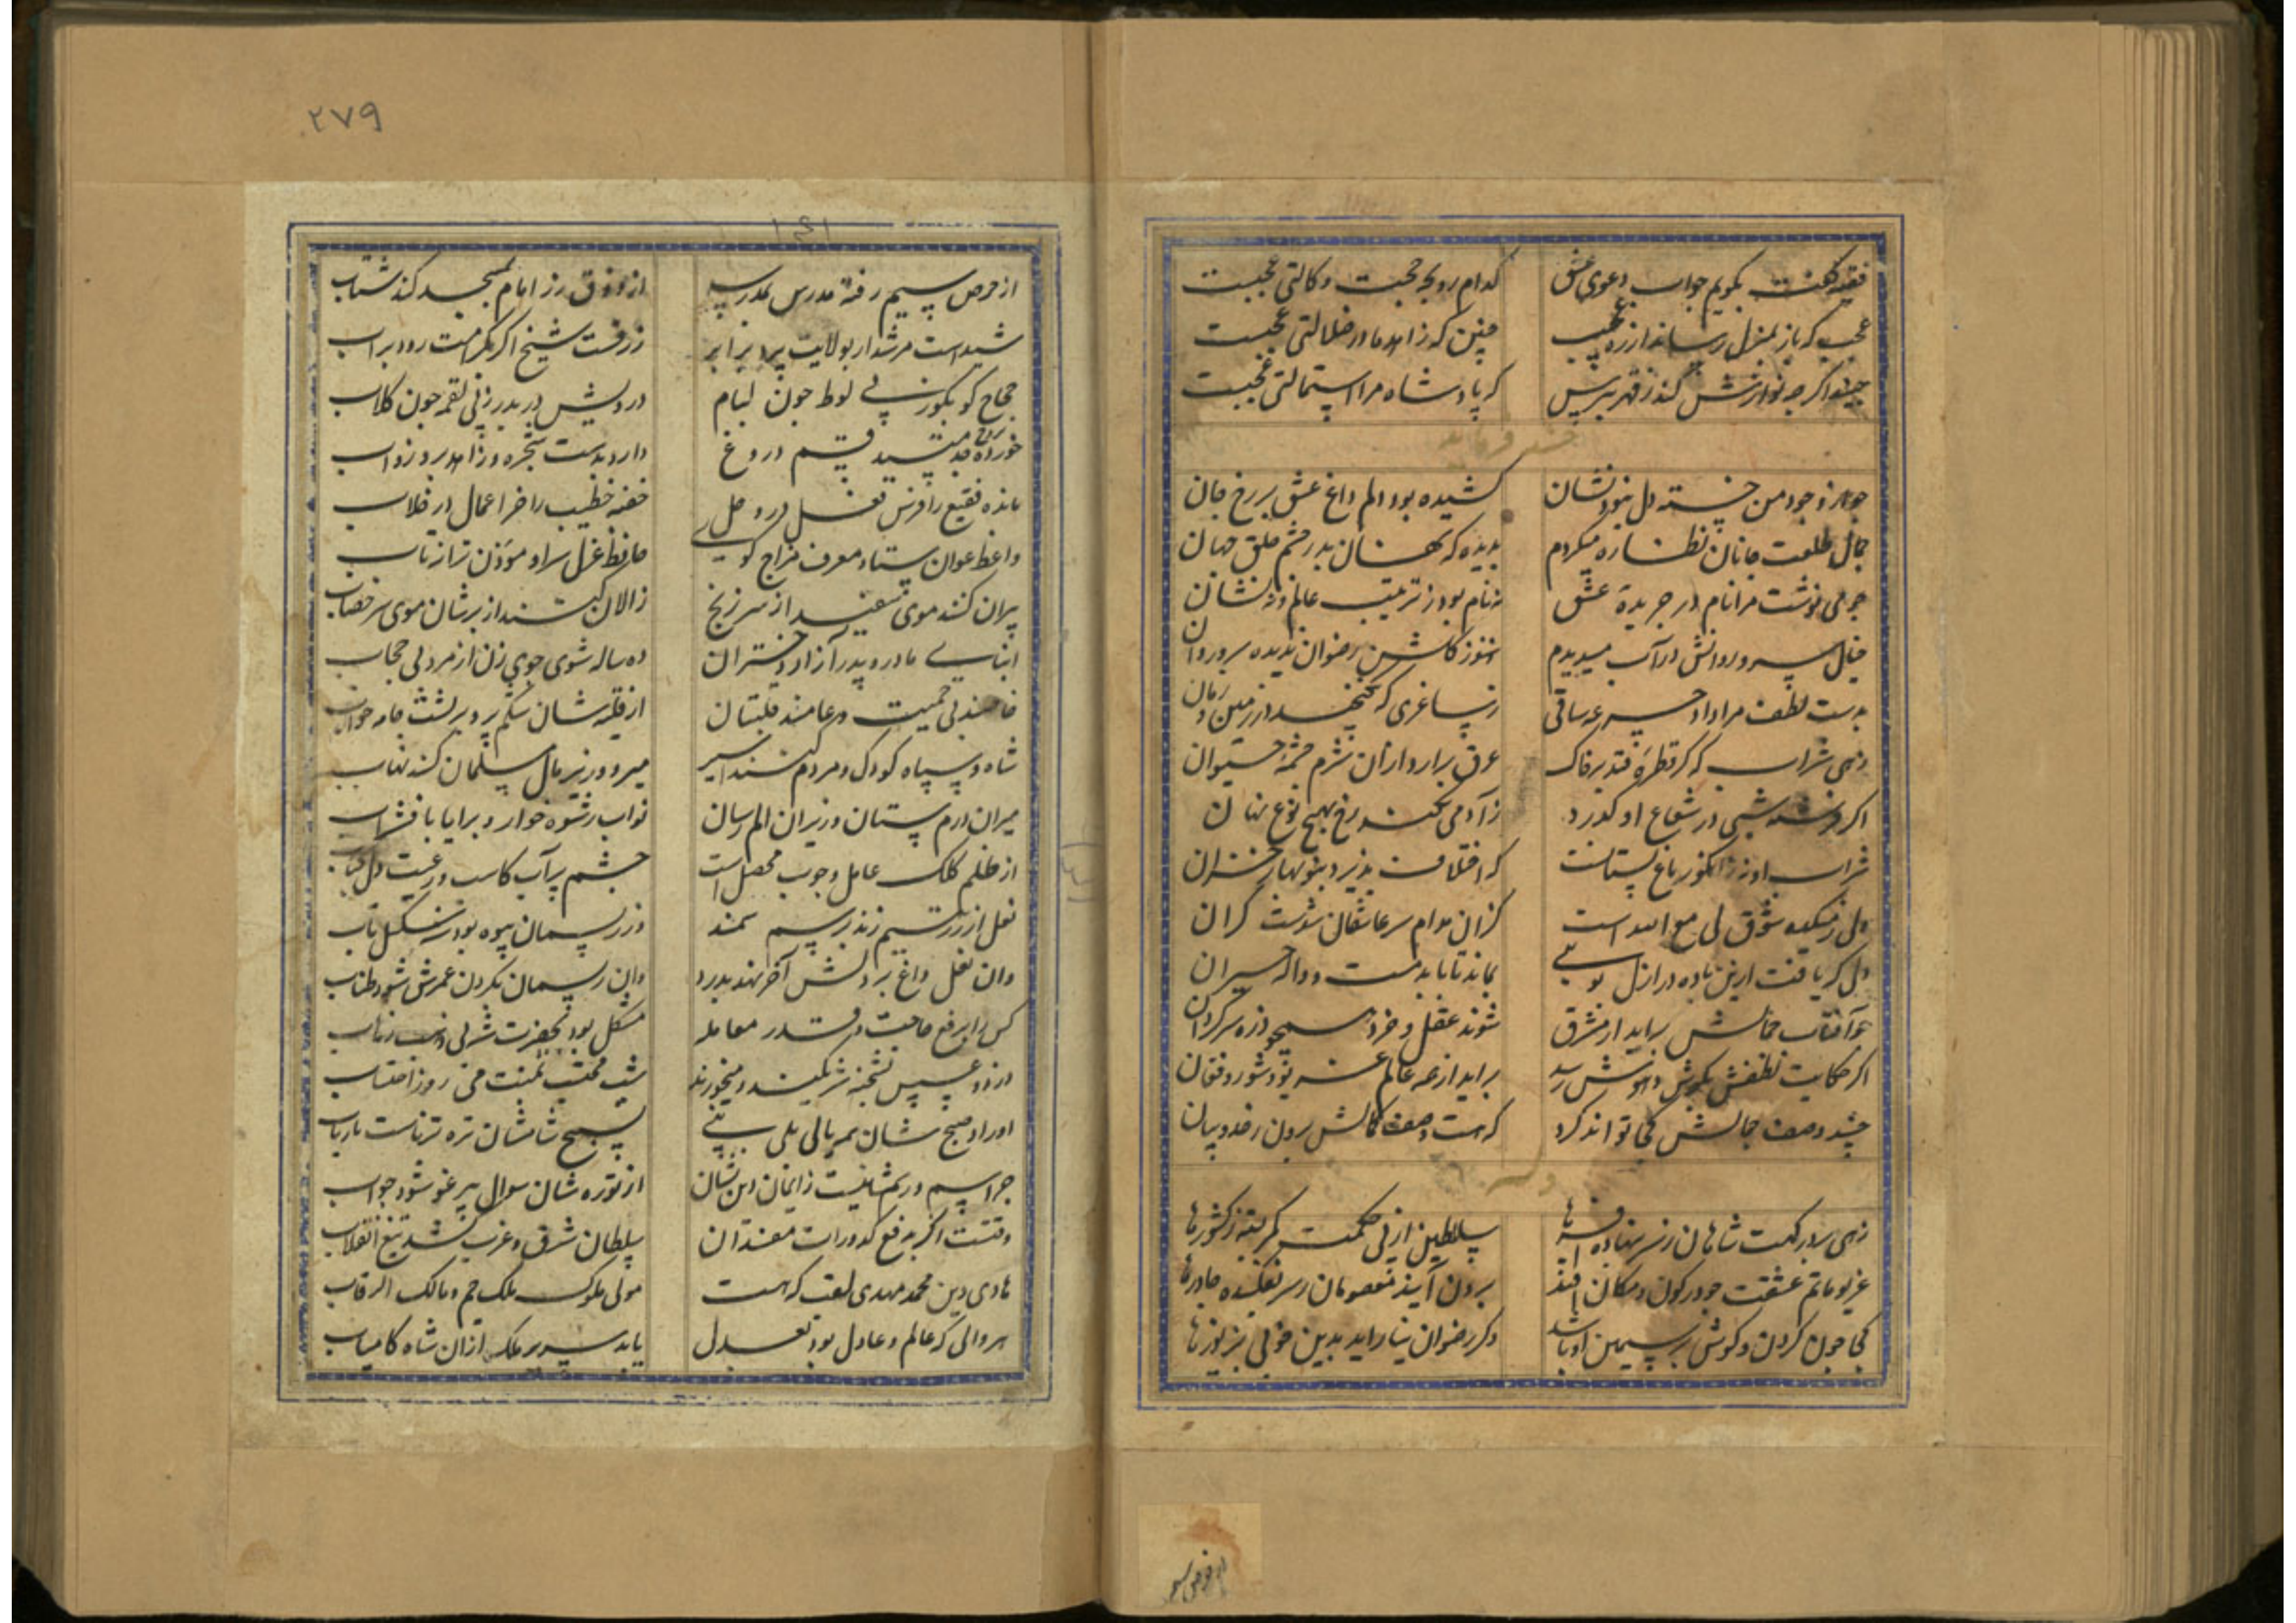 فقیه گفت بگویم جواب دعوی عشق
کدام رو بچه حجت وکالتی عجبست
عجب که باز بمنزل رساند از ره عجب
چنین که زاهد ما در ضلالتی عجبست
جنید اگر چه نوازش کند ز قهر بترس
که پادشاه مرا استمالتی عجبست
چو از وجود من خسته دل نبود نشان
کشیده بود الم داغ عشق بر رخ جان
جمال طلعت جانان نظاره میکردم
بدیده که نهان بد ز چشم خلق جهان
چو می نوشت مرا نام در جریدهٔ عشق
نه نام بود ز ترتیب عالم و نه نشان
خیال سرو روانش در آب میدیدم
هنوز گلشن رضوان ندیده سرو روان
بدست لطف مرا داد جرعه ساقی
ز ساغری که نگنجد در زمین و زمان
زهی شراب که گر قطرهٔ فتد بر خاک
عرق برآرد از آن شرم چشمهٔ حیوان
اگر فرشته شبی در شعاع او گذرد
ز آدمی نکند رخ بهیچ نوع نهان
شراب او نه ز انگور باغ بستانست
که اختلاف پذیرد بنوبهار خزان
ولی ز میکده شوق لی مع الله است
کزان مدام سر عاشقان شدست گران
دلی که یافت ازین باده در ازل بویی
بماند تا بابد مست و واله حیران
چو آفتاب جمالش برآید از مشرق
شوند عقل و خرد همچو ذره سرگردان
اگر حکایت لطفش بگوش و هوش رسد
برآید از همه عالم غریو و شور و فغان
جنید وصف جمالش کجا تواند کرد
که هست وصف کمالش برون ز حد و بیان
زهی بر درگهت شاهان ز سر بنهاده افسرها
سلاطین از پی حکمت کمر بسته ز کشورها
غریو ماتم عشقت چو در کون و مکان افتد
برون آیند معصومان ز سر افکنده چادرها
کجا چون گردن و گوش بر سیمین او باشد
وگر رضوان بیاراید بدین خوبی بزیورها
از حرص سیم رفته مدرس بمدرسه
از ذوق رز امام بمسجد کند شتاب
شیداست مرشد ار بولایت پرد برابر
زرقست شیخ اگر بکرامت رود بر آب
حجاج کو بکو ز پی لوط چون لیام
درویش در بدر ز پی لقمه چون کلاب
دارد بدست شجره و زاهد برو ذواب
خفته خطیب را خر اعمال در خلاب
واعظ عوان ستاد و معرف مزاج گوی
حافظ غزل سرا و مؤذن ترانه تاب
پیران کنند موی سفید از سر زنخ
زالان کنند از برشان موی سر خضاب
ابنا بی مادر و پدر آزار دختران
ده ساله شوی جوی زن از مرد بی حجاب
شاه و سپاه کودک و مردم شدند اسیر
میر و وزیر مال مسلمان کند نهاب
میران درم پرستان وزیران الم رسان
نواب رشوه خوار و برایا باغتشاب
از ظلم کلک عامل و چوب محصل است
چشم پر آب کاسب و رعیت دل کباب
نعل از زر ستیم زند بر سم سمند
وز ریسمان بیوه بود تنگ سکل تاب
وان نعل داغ بر دلش آخر نهد بدرد
وان ریسمان بگردن عمرش شود طناب
کس را برفع حاجت در قدر معامله
مشکل بود بحضرت شه بی ذهب ذهاب
دزد و عسس بشحنه شریکند و میخورند
شب محتسب بمنت می روز احتساب
از توره شان سوال پیرغو شود جواب
وقتست اگر بدفع کدورات مفسدان
سلطان شرق و غرب کشد تیغ انقلاب
هادی دین محمد مهدی لقب که هست
مولی ملوک ملک جم و مالک الرقاب
هر والی که عالم و عادل بود بعدل
یابد سریر ملک از آن شاه کامیاب
۲۷۹
از حرص سیم